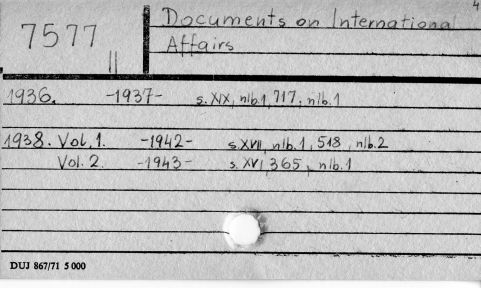 4
7577 II
Documents on International
Affairs
1936. -1937- s. XIX, nlb.1, 717, nlb.1
1938. Vol.1. -1942- s. XVII, nlb.1, 518, nlb.2
Vol. 2. -1943- s. XVI, 365, nlb.1
DUJ 867/71 5 000